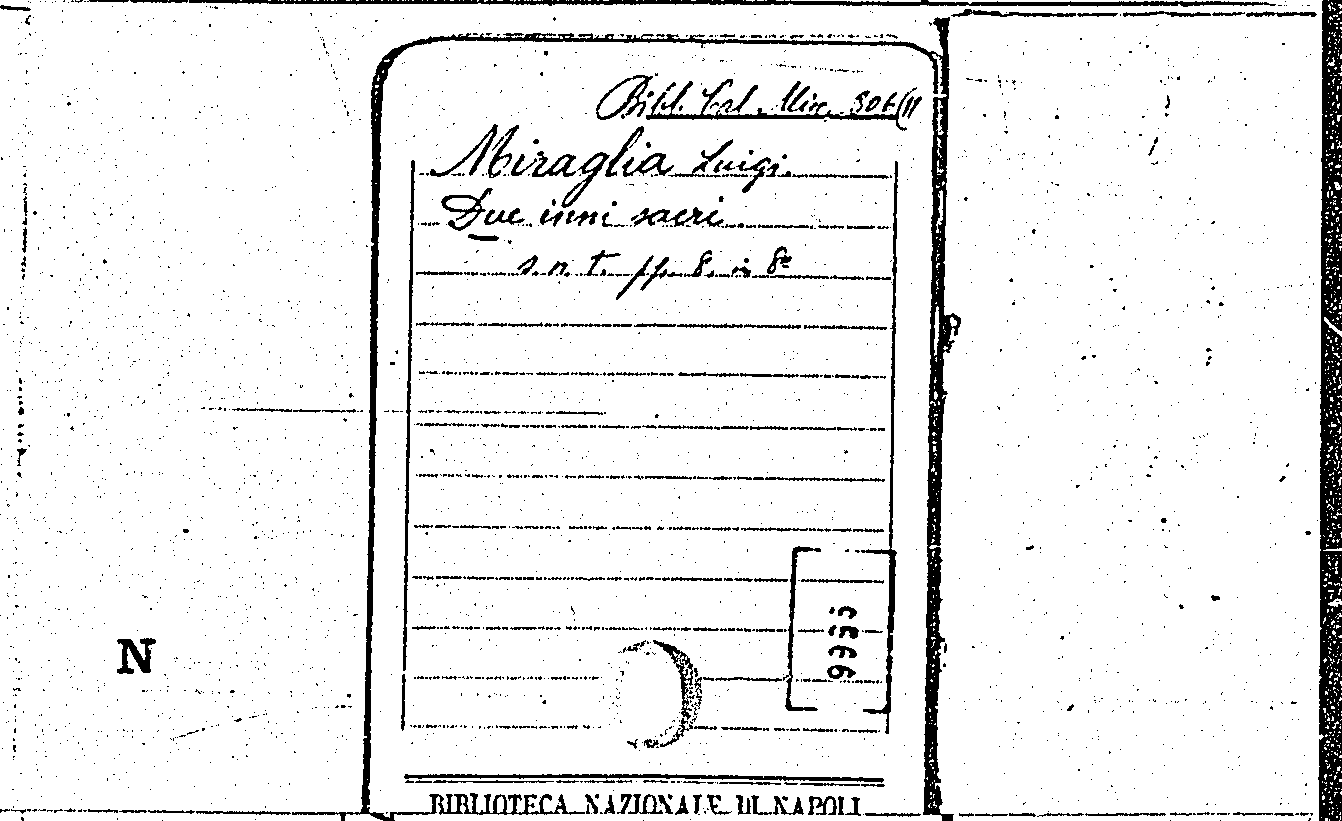 Bibl. Cal. Misc. 306(11
Miraglia Luigi.
Due inni sacri.
s. n. t. pp. 8. in 8º
N
BIBLIOTECA NAZIONALE DI NAPOLI